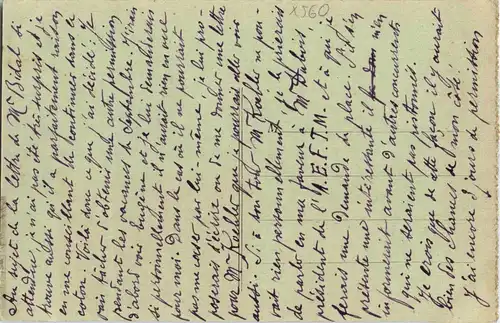 X560
Au sujet de la lettre de Mr Bidal si
attendue, je n'ai pas été très surpris et je
trouve aussi qu'il a parfaitement raison
en me conseillant de continuer dans le
coton. Voilà donc ce que j'ai décidé : Je
vais tâcher d'obtenir une autre permission
pendant les vacances de septembre. J'irais
d'abord voir Eugène et je lui demanderais
si personnellement il n'aurait rien en vue
pour moi. Dans le cas où il ne pourrait
pas me caser par lui-même, je lui pro-
poserais d'écrire ou de me donner une lettre
pour Mr Koehler que je pourrais aller voir
aussi. Si à son tour Mr Koehler ne pou-
vait rien personnellement, je le prierais
de parler en ma faveur à Mr Dubois
président de l'A.E.F.T.M. et à qui je
ferais une demande de place. Si rien
présente une intéressante il m'en
informerait avant d'autres concurrents
qui ne seraient pas patronnés.
Je crois que de cette façon il y aurait
bien des chances de mon côté.
J'ai encore 7 jours de permission